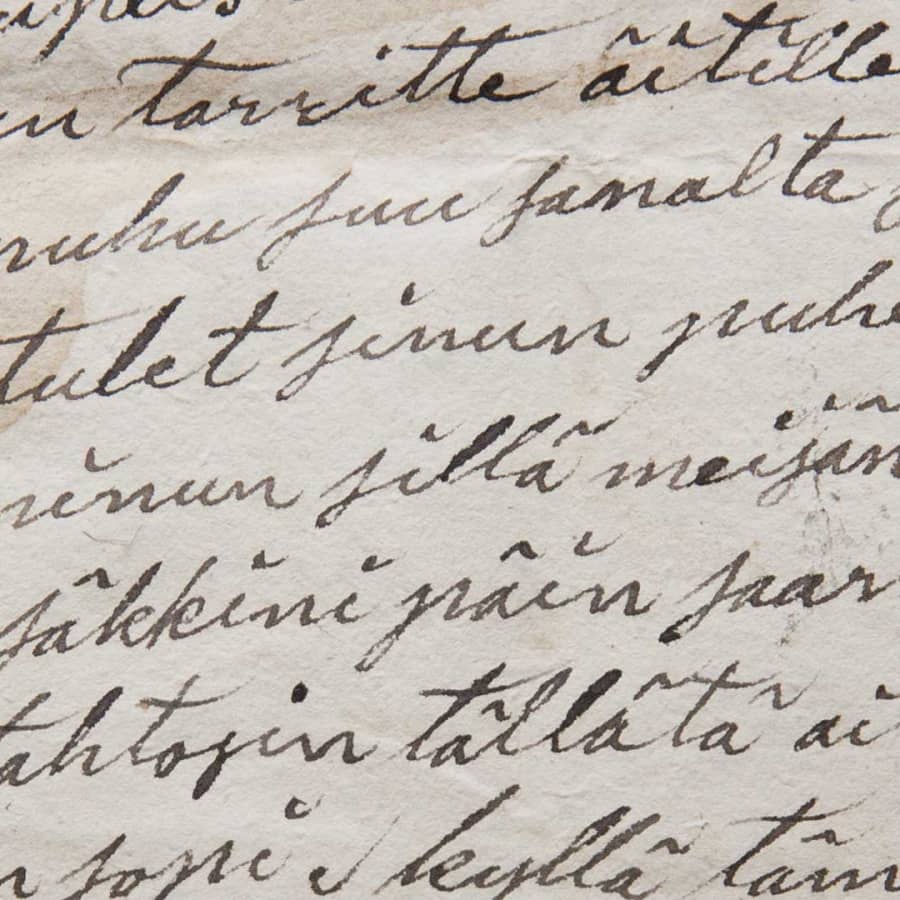 un tarvitte äitille
puhu suu sanalta
tulet sinun puhe
minun sillä meijän
säkkini päin saar
tahtosin tällätä äi
n sopi kyllä täm